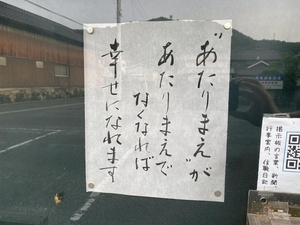 "あたりまえ"が
あたりまえで
なくなれば
幸せになれます
掲示板の言葉、新聞、
行事案内、住職日記